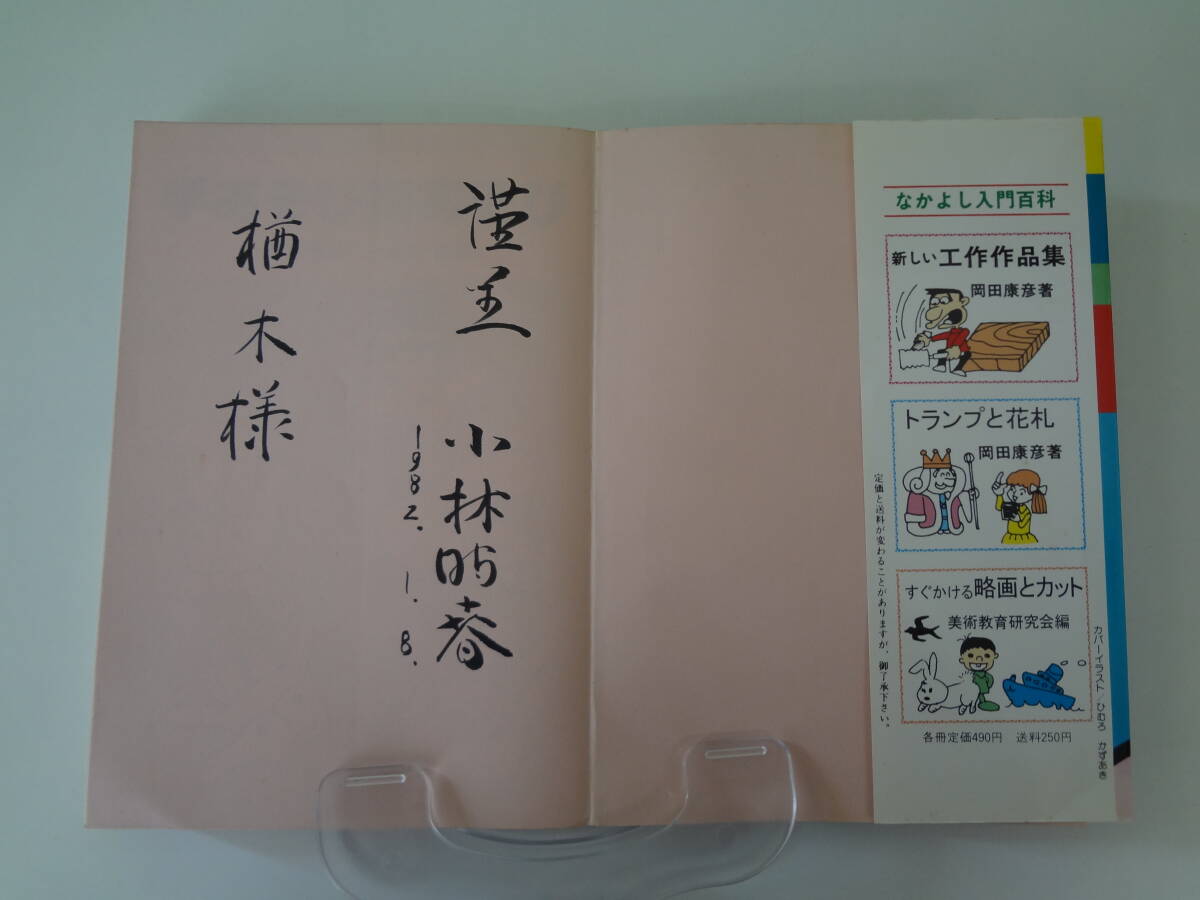 謹呈
小林晴春
1982. 1. 8.
楢木様
なかよし入門百科
新しい工作作品集
岡田康彦著
トランプと花札
岡田康彦著
すぐかける略画とカット
美術教育研究会編
各冊定価490円 送料250円
定価と送料が変わることがありますが、御了承下さい。
カバーイラスト/ひむろ かずあき